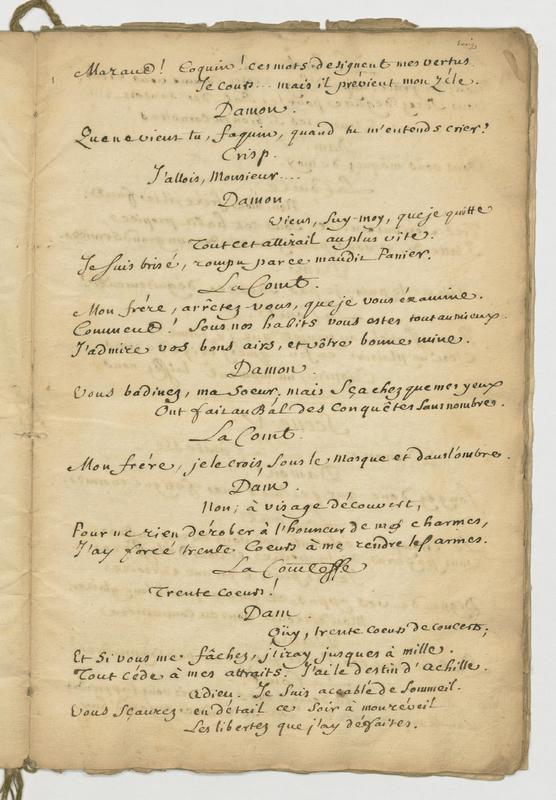 Maraud! Coquin! ces mots designent mes vertus.
Je cours... mais il prévient mon zéle.
Damon.
Que ne viens tu, faquin, quand tu m'entends crier?
Crisp.
J'allois, Monsieur....
Damon.
Viens, suy-moy, que je quitte
Tout cet attirail au plus vîte.
Je suis brisé, rompu par ce maudit Panier.
La Comt.
Mon frére, arrêtez-vous, que je vous éxamine.
Comment! Sous nos habits vous estes tout au mieux.
J'admire vos bons airs, et vôtre bonne mine.
Damon.
Vous badinez, ma Soeur, mais sçachez que mes yeux
Ont fait au Bal des Conquêtes sans nombre.
La Comt.
Mon frére, je le crois, sous le Masque et dans l'ombre.
Dam.
Non; à visage découvert,
Pour ne rien dérober à l'honneur de mes charmes,
J'ay forcé trente Coeurs à me rendre les armes.
La Comtesse
Trente coeurs!
Dam.
Oüy, trente coeurs de concert;
Et si vous me fâchez, j'iray jusques à mille.
Tout céde à mes attraits. J'ai le destin d'Achille.
Adieu. Je suis accablé de Sommeil.
Vous sçaurez en détail ce soir à mon réveil
Les libertez que j'ay défaites.